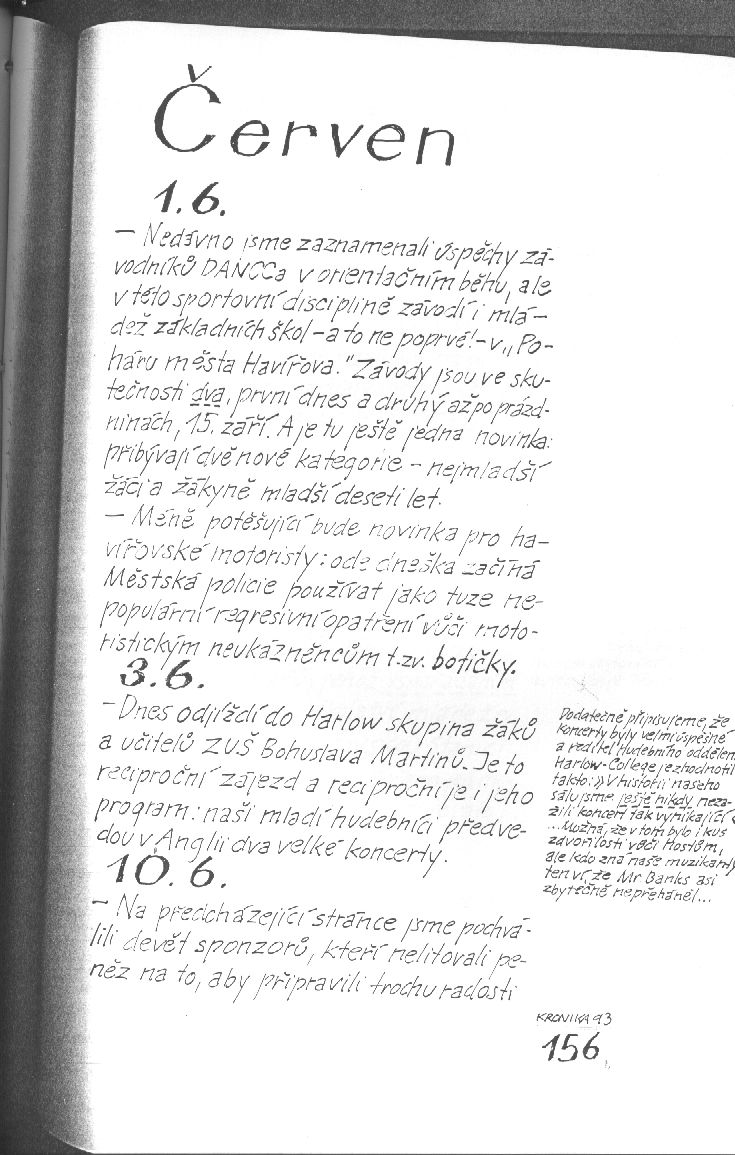 Červen
1.6.
– Nedávno jsme zaznamenali úspěchy zá-
vodníků DANCCa v orientačním běhu, ale
v této sportovní disciplíně závodí i mlá-
dež základních škol – a to ne poprvé! – v „Po-
háru města Havířova." Závody jsou ve sku-
tečnosti dva, první dnes a druhý až po prázd-
ninách, 15. září. A je tu ještě jedna novinka:
přibývají dvě nové kategorie – nejmladší
žáci a žákyně mladší deseti let.
– Méně potěšující bude novinka pro ha-
vířovské motoristy: ode dneška začíná
Městská policie používat jako tuze ne-
populární regresivní opatření vůči moto-
ristickým neukázněncům t.zv. botičky.
3.6.
– Dnes odjíždí do Harlow skupina žáků
a učitelů ZUŠ Bohuslava Martinů. Je to
reciproční zájezd a reciproční je i jeho
program: naši mladí hudebníci předve-
dou v Anglii dva velké koncerty.
Dodatečně připisujeme, že
koncerty byly velmi úspěšné
a ředitel Hudebního oddělen
Harlow-College je zhodnotil
takto: »V historii našeho
sálu jsme ještě nikdy neza-
žili koncert tak vynikající«
...Možná, že v tom bylo i kus
zdvořilosti vůči Hostům,
ale kdo zná naše muzikanty
ten ví, že Mr Banks asi
zbytečně nepřeháněl...
10.6.
– Na předcházející stránce jsme pochvá-
lili devět sponzorů, kteří nelitovali pe-
něz na to, aby připravili trochu radosti
KRONIKA 93
156